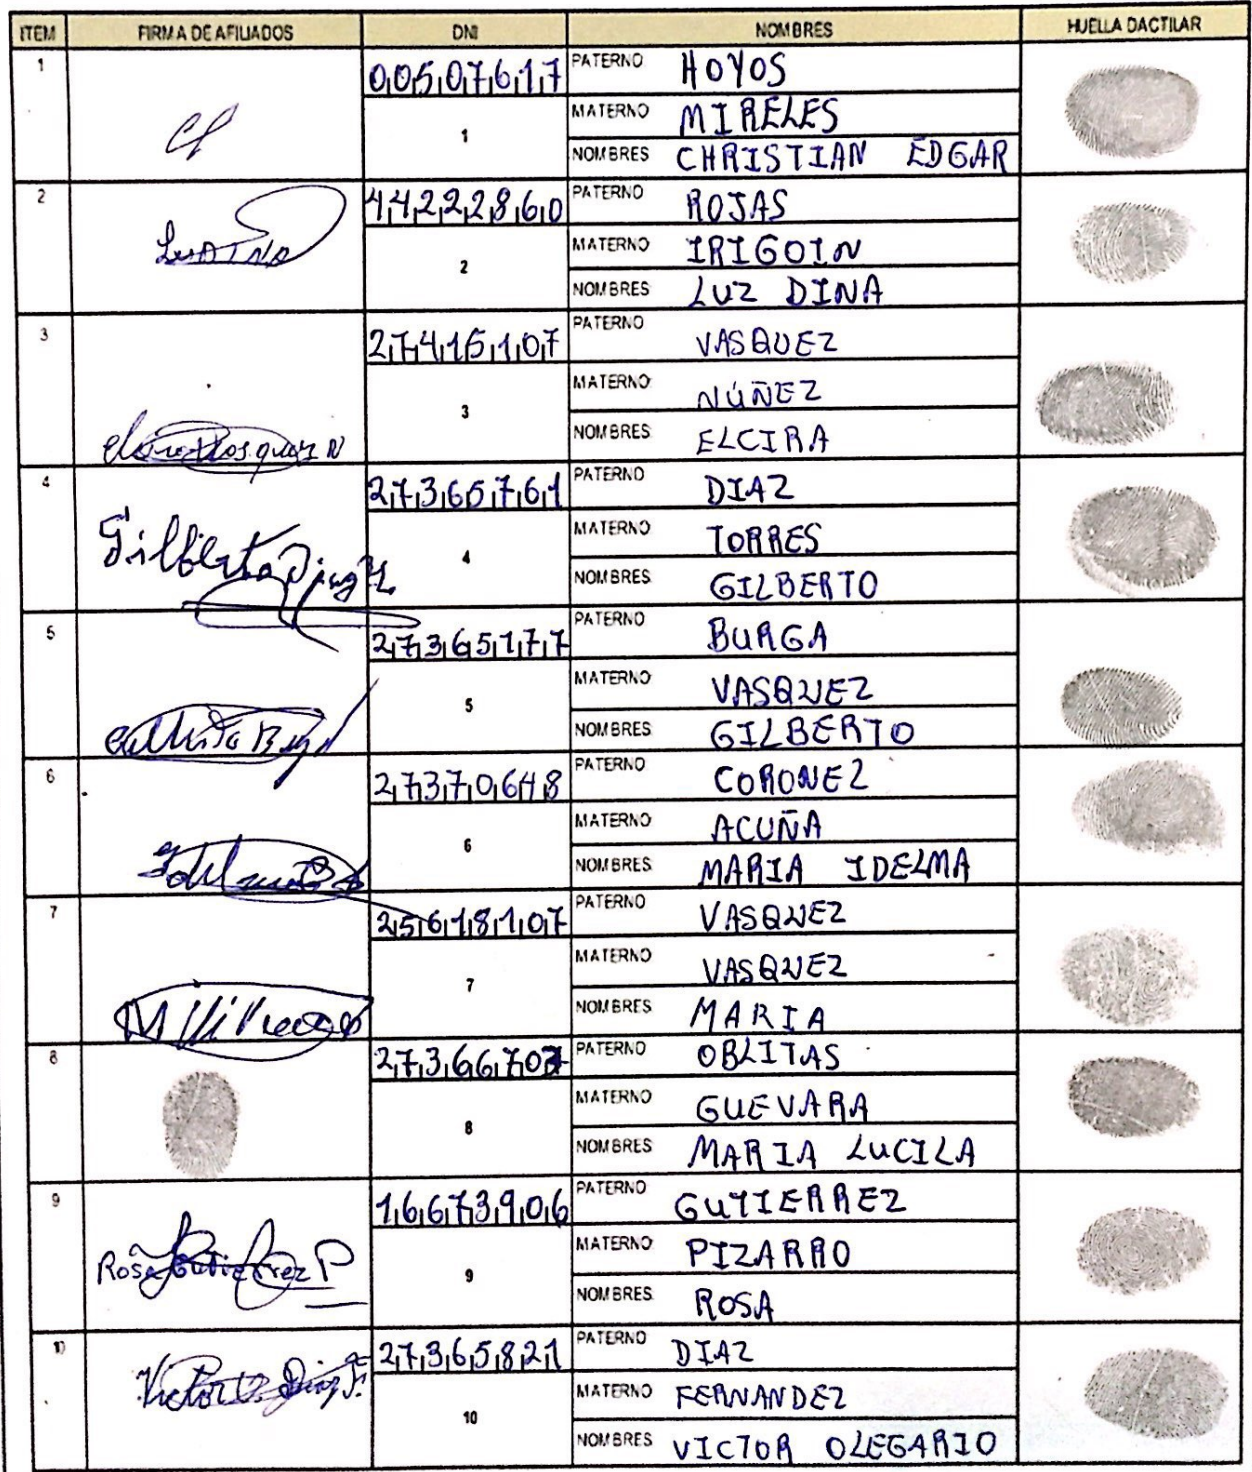 ITEM FIRMA DE AFILIADOS DNI NOMBRES HUELLA DACTILAR
1 00507617 PATERNO HOYOS
MATERNO MIRELES
1
NOMBRES CHRISTIAN EDGAR
2 44222860 PATERNO ROJAS
LuzDINA MATERNO IRIGOIN
2
NOMBRES LUZ DINA
3 27415107 PATERNO VASQUEZ
MATERNO NÚÑEZ
3
NOMBRES ELCIRA
4 27365761 PATERNO DIAZ
Gilberto Diaz MATERNO TORRES
4
NOMBRES GILBERTO
5 27365177 PATERNO BURGA
MATERNO VASQUEZ
5
NOMBRES GILBERTO
6 27370648 PATERNO CORONEL
MATERNO ACUÑA
6
NOMBRES MARIA IDELMA
7 25618107 PATERNO VASQUEZ
MATERNO VASQUEZ
7
NOMBRES MARIA
8 273667 PATERNO OBLITAS
MATERNO GUEVARA
8
NOMBRES MARIA LUCILA
9 16673906 PATERNO GUTIERREZ
MATERNO PIZARRO
Rosa Gutierrez P 9
NOMBRES ROSA
10 27365821 PATERNO DIAZ
Victor O. Diaz F. MATERNO FERNANDEZ
10
NOMBRES VICTOR OLEGARIO